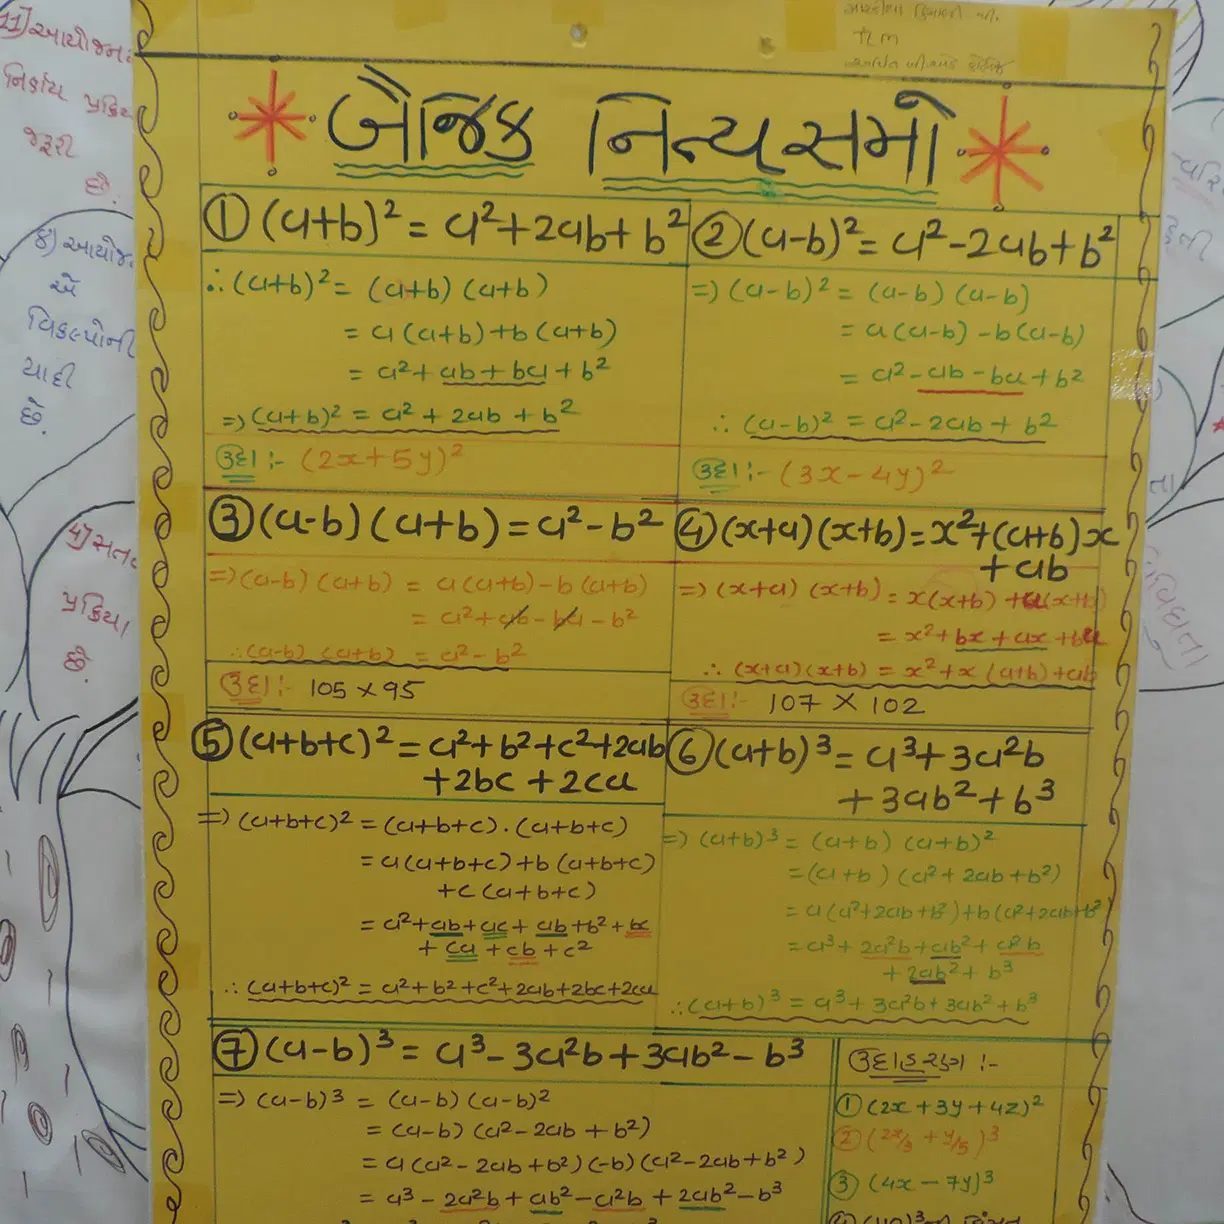 TLM
બૈજિક નિત્યસમો
① (a+b)² = a²+2ab+b²
∴ (a+b)² = (a+b) (a+b)
= a (a+b) + b (a+b)
= a² + ab + ba + b²
⇒ (a+b)² = a² + 2ab + b²
ઉદા :- (2x+5y)²
② (a-b)² = a²-2ab+b²
⇒ (a-b)² = (a-b) (a-b)
= a (a-b) - b (a-b)
= a² - ab - ba + b²
∴ (a-b)² = a² - 2ab + b²
ઉદા :- (3x-4y)²
③ (a-b) (a+b) = a²-b²
⇒ (a-b) (a+b) = a (a+b) - b (a+b)
= a² + ab - ba - b²
∴ (a-b) (a+b) = a² - b²
ઉદા :- 105 × 95
④ (x+a) (x+b) = x²+(a+b)x
+ab
⇒ (x+a) (x+b) = x(x+b) + a(x+b)
= x² + bx + ax + ba
∴ (x+a) (x+b) = x² + x (a+b) + ab
ઉદા :- 107 × 102
⑤ (a+b+c)² = a²+b²+c²+2ab
+2bc+2ca
⇒ (a+b+c)² = (a+b+c) . (a+b+c)
= a (a+b+c) + b (a+b+c)
+c (a+b+c)
= a²+ab+ac+ab+b²+bc
+ ca + cb + c²
∴ (a+b+c)² = a²+b²+c²+2ab+2bc+2ca
⑥ (a+b)³ = a³+3a²b
+3ab²+b³
⇒ (a+b)³ = (a+b) (a+b)²
= (a+b) (a²+2ab+b²)
= a (a²+2ab+b²) + b (a²+2ab+b²)
= a³ + 2a²b + ab² + a²b
+ 2ab² + b³
∴ (a+b)³ = a³+3a²b+3ab²+b³
⑦ (a-b)³ = a³-3a²b+3ab²-b³
⇒ (a-b)³ = (a-b) (a-b)²
= (a-b) (a²-2ab+b²)
= a (a²-2ab+b²) (-b) (a²-2ab+b²)
= a³ - 2a²b + ab² - a²b + 2ab² - b³
ઉદાહરણ :-
① (2x+3y+4z)²
② (2x/3 + y/5)³
③ (4x-7y)³
11) આયોજન
નિર્ણય
જરૂરી
છે.
૪) આયોજન
એ
વિકલ્પોની
યાદી
છે.
૫) સતત
પ્રક્રિયા
છે.